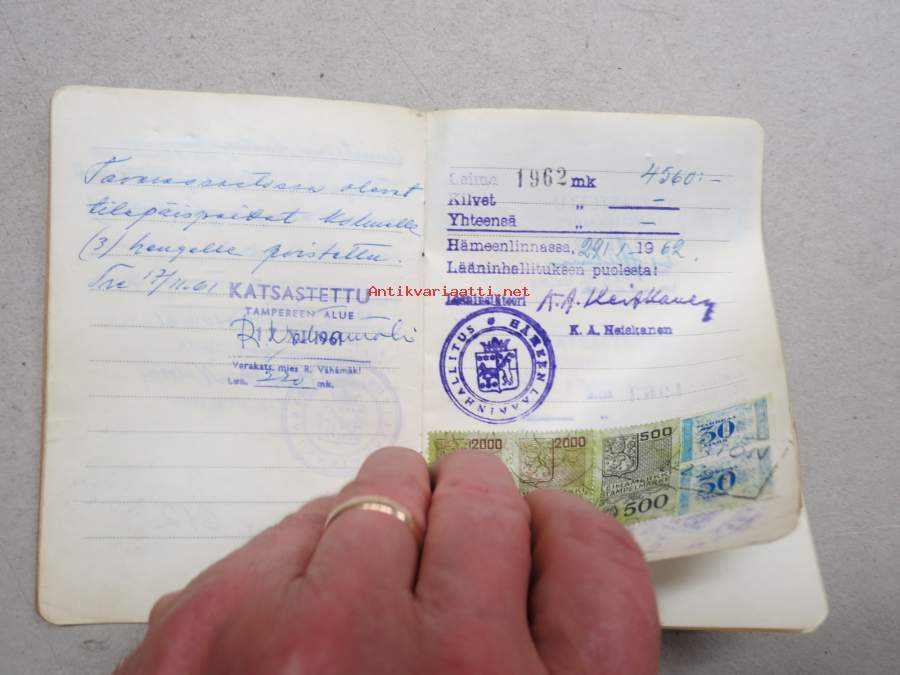 Tavarasuojassa olevat
tilapäispaikat kolmelle
(3) hengelle poistettu.
Tre 17/11.61
KATSASTETTU
TAMPEREEN ALUE
1961
Varakats. mies R. Vähämäki
Lun. 320 mk.
Leima 1962 mk 4560:-
Kilvet " -
Yhteensä " -
Hämeenlinnassa, 29/1 1962.
Lääninhallituksen puolesta:
K. A. Heiskanen
K. A. Heiskanen
HÄMEEN LÄÄNINHALLITUS
Antikvariaatti.net
2000 2000 500 50
LEIMAMERKKI
STÄMPELMÄRKE
500 50